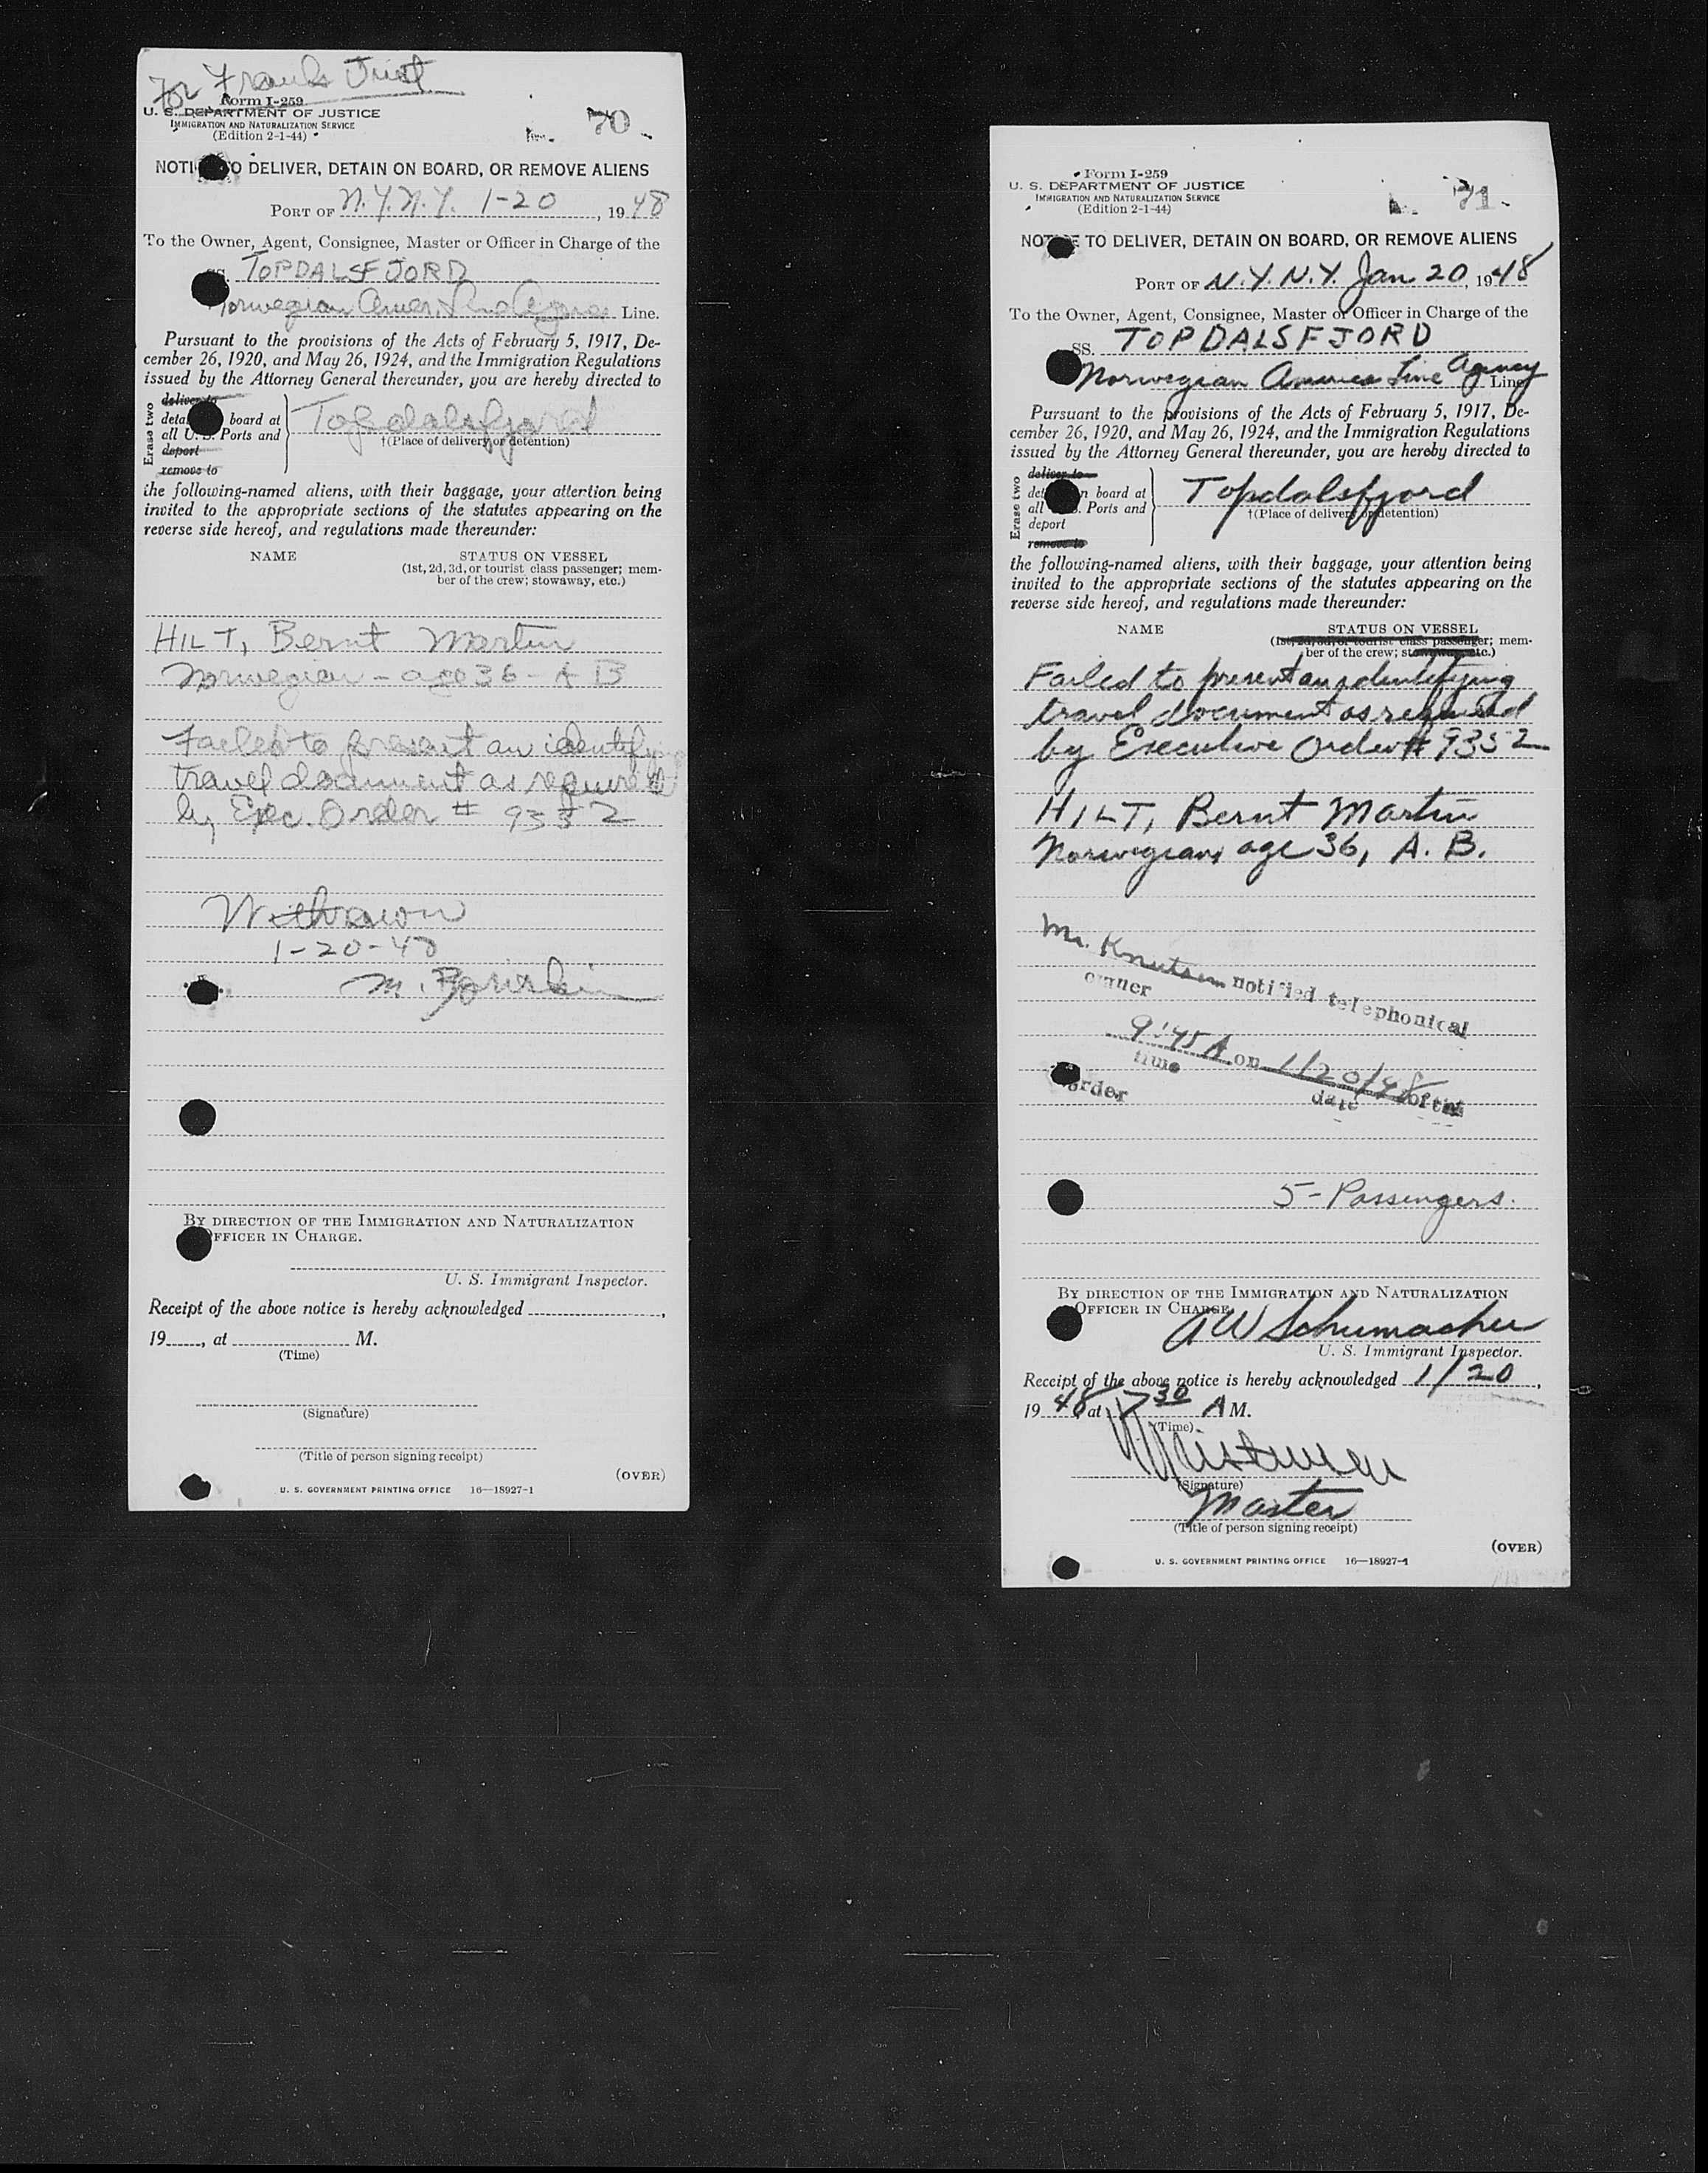 For Frank
Form I-259
U. S. DEPARTMENT OF JUSTICE
IMMIGRATION AND NATURALIZATION SERVICE
(Edition 2-1-44)
70
NOTI O DELIVER, DETAIN ON BOARD, OR REMOVE ALIENS
PORT OF N.Y. N.Y. 1-20, 1948
To the Owner, Agent, Consignee, Master or Officer in Charge of the
SS. TOPDALSFJORD
Norwegian Amer. Line Agency Line.
Pursuant to the provisions of the Acts of February 5, 1917, De-
cember 26, 1920, and May 26, 1924, and the Immigration Regulations
issued by the Attorney General thereunder, you are hereby directed to
Erase two
deliver to
deta board at
all U. S. Ports and
deport
remove to
Topdalsfjord
†(Place of delivery or detention)
the following-named aliens, with their baggage, your attention being
invited to the appropriate sections of the statutes appearing on the
reverse side hereof, and regulations made thereunder:
NAME STATUS ON VESSEL
(1st, 2d, 3d, or tourist class passenger; mem-
ber of the crew; stowaway, etc.)
HILT, Bernt Martin
Norwegian - age 36 - A B
Failed to present an identifying
travel document as required
by Exec. Order # 9352
Withdrawn
1-20-48
M.
BY DIRECTION OF THE IMMIGRATION AND NATURALIZATION
OFFICER IN CHARGE.
U. S. Immigrant Inspector.
Receipt of the above notice is hereby acknowledged ,
19 , at M.
(Time)
(Signature)
(Title of person signing receipt)
(OVER)
U. S. GOVERNMENT PRINTING OFFICE 16—18927-1
Form I-259
U. S. DEPARTMENT OF JUSTICE
IMMIGRATION AND NATURALIZATION SERVICE
(Edition 2-1-44)
71
NOTICE TO DELIVER, DETAIN ON BOARD, OR REMOVE ALIENS
PORT OF N.Y. N.Y. Jan 20, 1948
To the Owner, Agent, Consignee, Master or Officer in Charge of the
SS. TOPDALSFJORD
Norwegian America Line Agency Line
Pursuant to the provisions of the Acts of February 5, 1917, De-
cember 26, 1920, and May 26, 1924, and the Immigration Regulations
issued by the Attorney General thereunder, you are hereby directed to
Erase two
deliver to
det n board at
all . Ports and
deport
remove to
Topdalsfjord
†(Place of delivery or detention)
the following-named aliens, with their baggage, your attention being
invited to the appropriate sections of the statutes appearing on the
reverse side hereof, and regulations made thereunder:
NAME STATUS ON VESSEL
(1st, 2d, 3d, or tourist class passenger; mem-
ber of the crew; stowaway, etc.)
Failed to present an identifying
travel document as required
by Executive Order # 9352
HILT, Bernt Martin
Norwegian, age 36, A. B.
Mr. Knutsen notified telephonical
owner
9:45 A on 1/20/48 of this
time date
order
5 - Passengers.
BY DIRECTION OF THE IMMIGRATION AND NATURALIZATION
OFFICER IN CHARGE
A W Schumacher
U. S. Immigrant Inspector.
Receipt of the above notice is hereby acknowledged 1/20,
1948 at 7 30 A M.
(Time)
(Signature)
Master
(Title of person signing receipt)
(OVER)
U. S. GOVERNMENT PRINTING OFFICE 16—18927-1